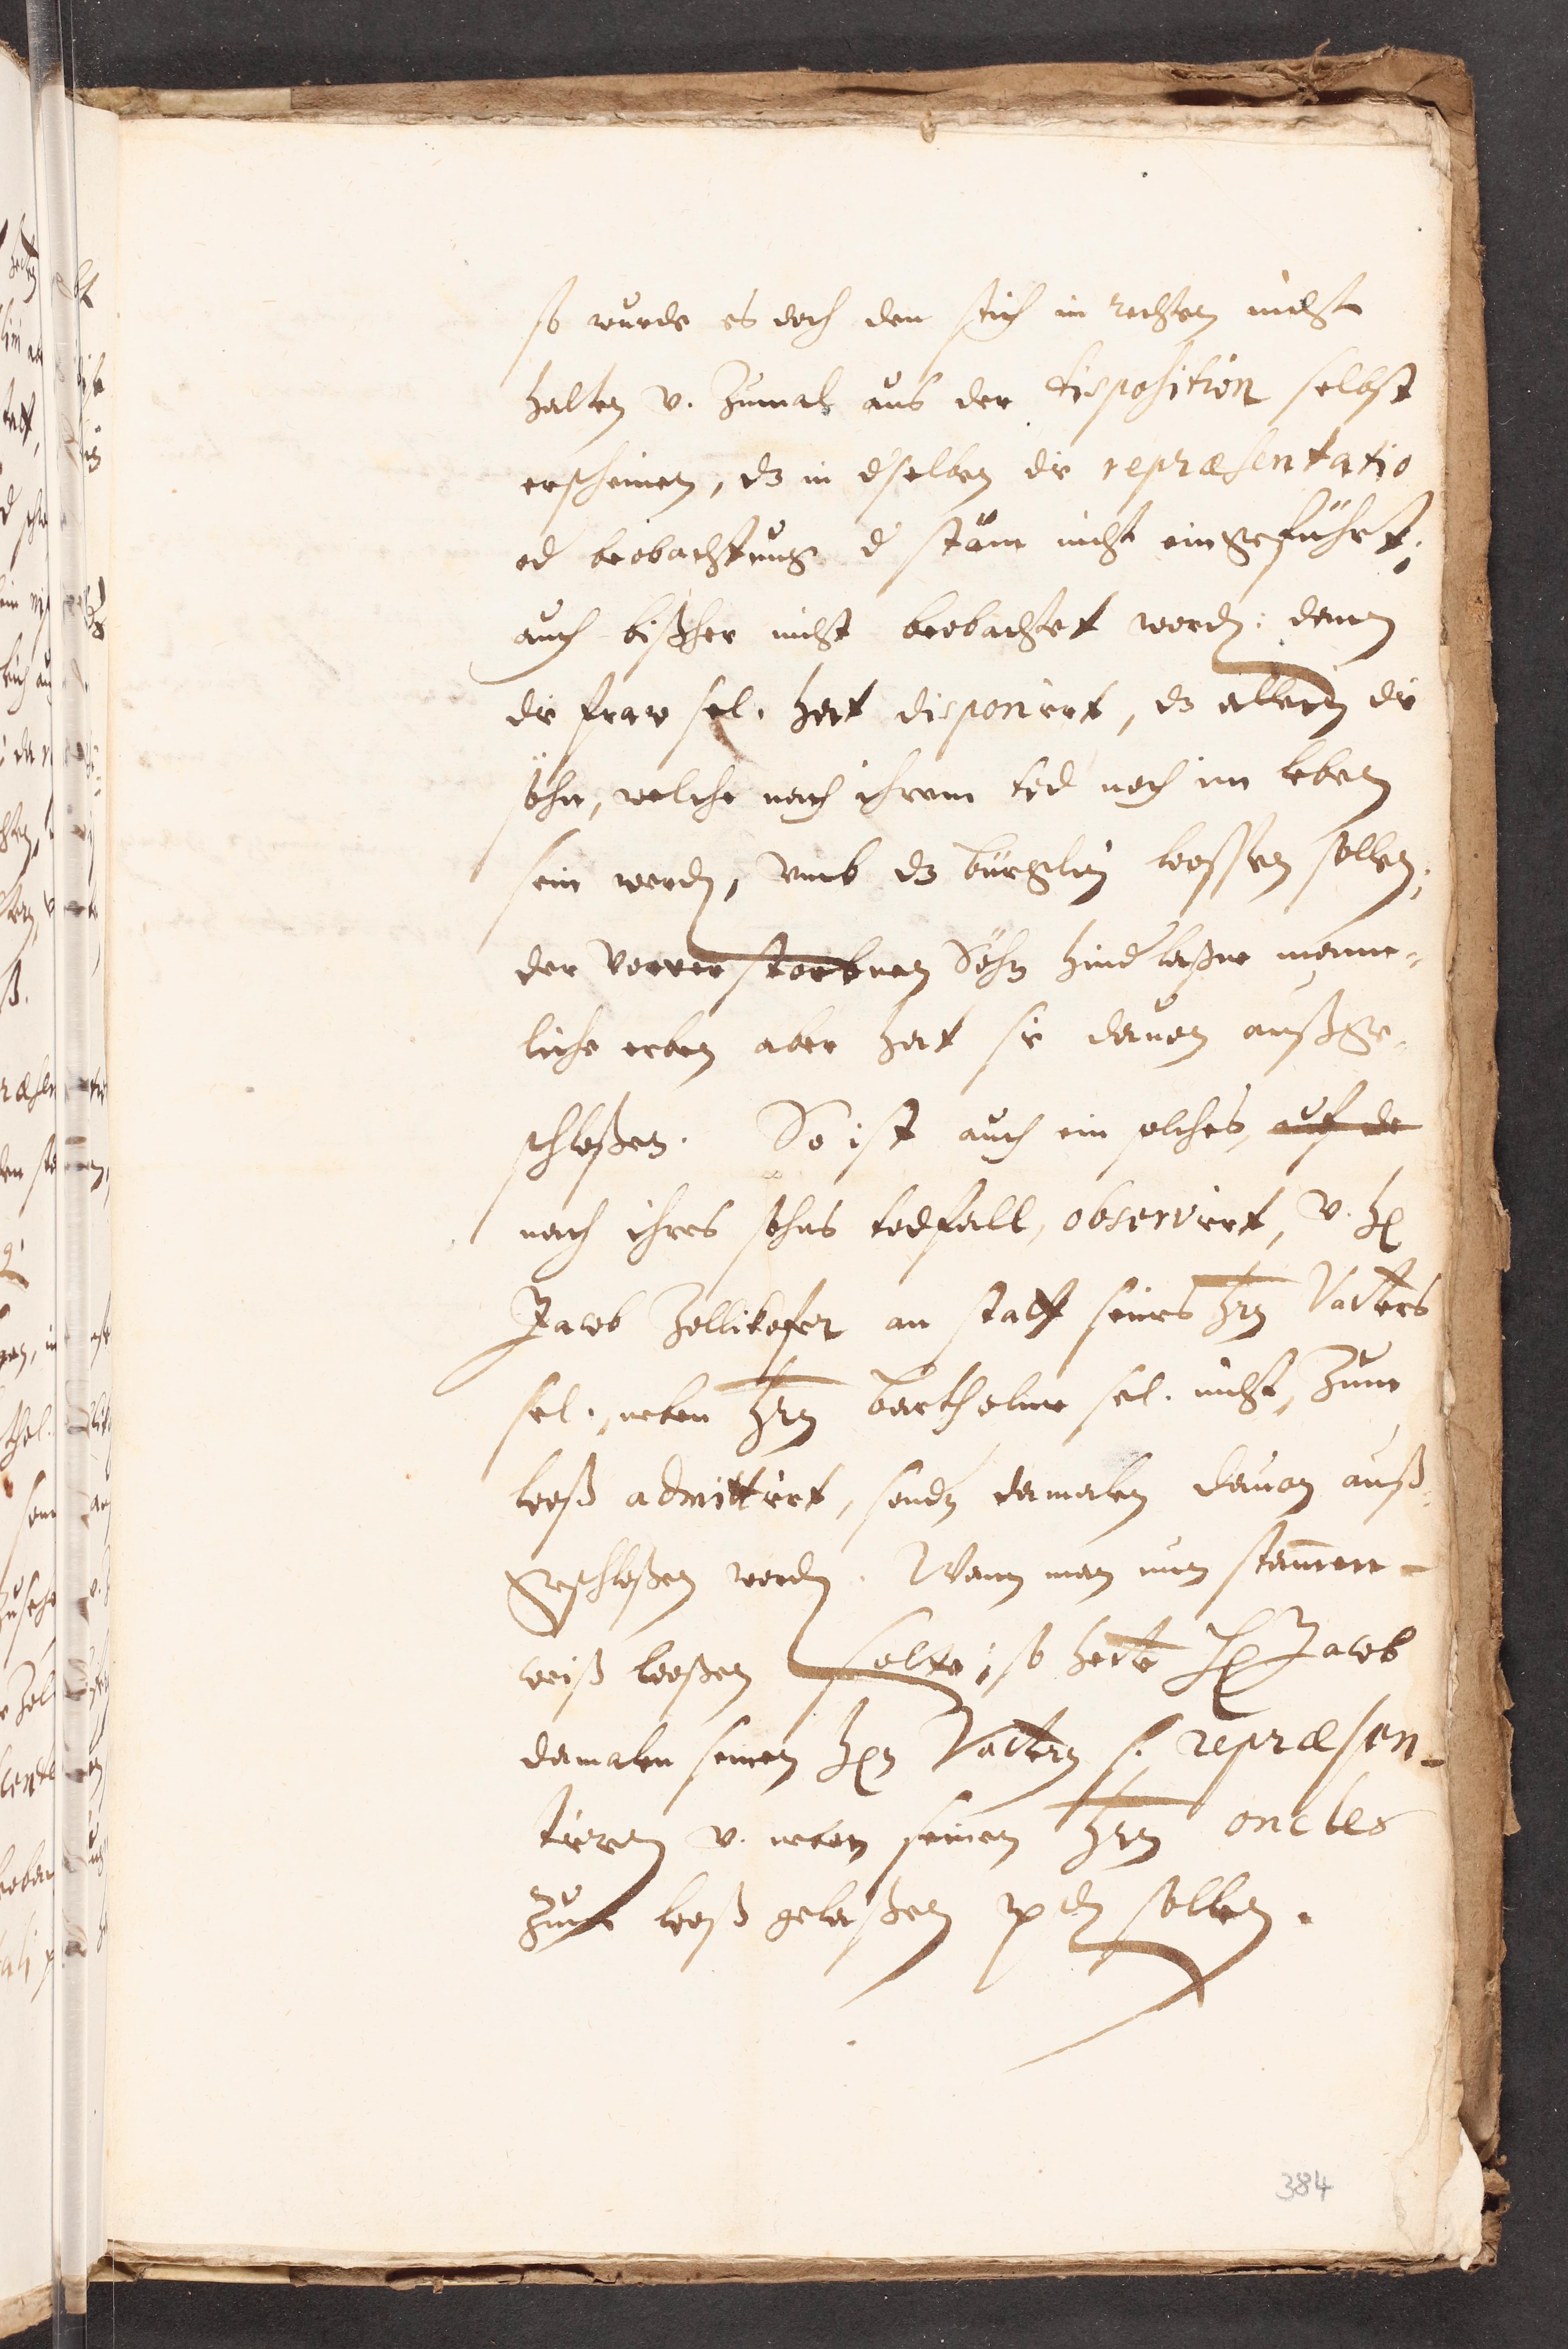 so wurde es doch den stich in rechten nicht
halten v. Zumal aus der disposition selbst
erscheinen, dz in dselben die repræsentatio
od beobachtung d stäm nicht eingeführt;
auch bißher nicht beobachtet word: denn
die fraw sel. hat disponiert, dz allein die
söhn, welche nach ihrem tod noch im leben
sein werdn, vmb dz bürglin loossen sollen;
der vorverstorbnen Söhn hindlaßne männ-
liche erben aber hat sie dauon außge-
schloßen. So ist auch ein solches, auf de
nach ihres sohns todfall, observiert, v. Hr
Jacob Zollikofer an statt seines Hrn Vatters
sel., neben Hrn Bartholme sel. nicht, Zum
looß admittiert, sondn damalen dauon auß-
geschloßen wordn. Wann man nun stammen-
weiß looßen solte; so hette Hr Jacob
damalen seinen Hrn Vattern s. repræsen-
tieren v. neben seinen Hrn oncles
Zum looß gelaßen wdn sollen.
384